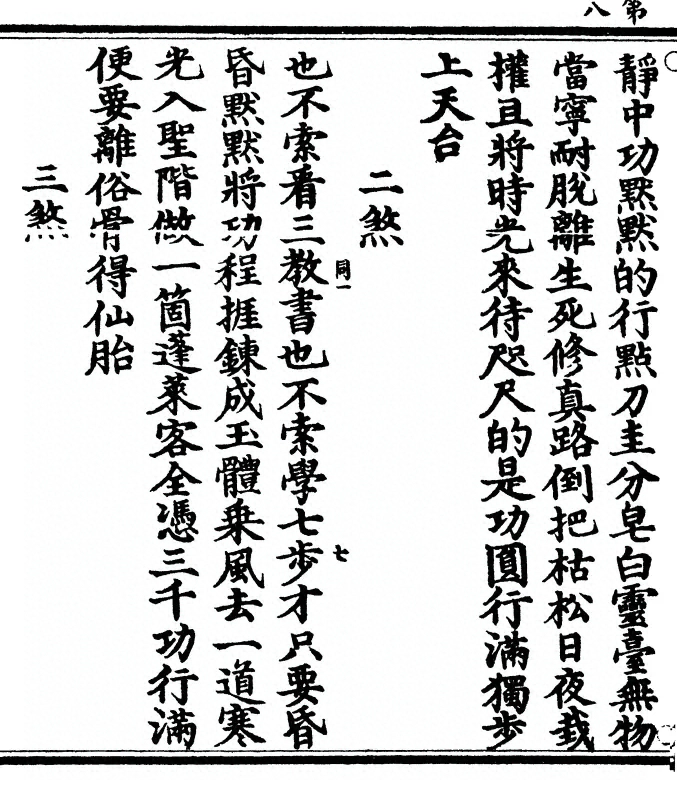 第八
靜中功黙黙的行點刀圭分皂白靈臺無物
當寧耐脫離生死修真路倒把枯松日夜栽
權且將時光來待咫尺的是功圓行滿獨步
上天台
二煞
也不索看三教書也不索學七步才只要昏
同一
七
昏黙黙將功程捱鍊成玉體乗風去一道寒
光入聖階做一箇蓬萊客全憑三千功行滿
便要離俗骨得仙胎
三煞